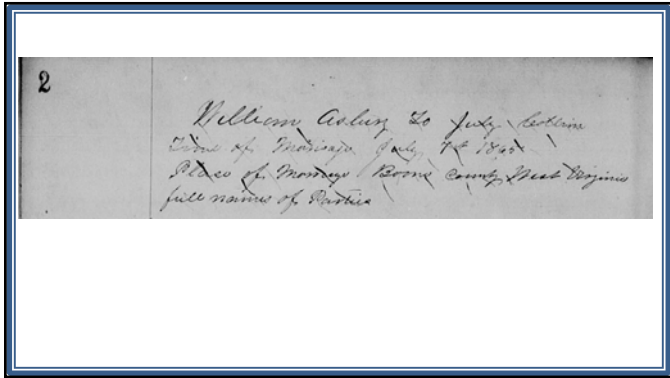 2
William Asbury to July Collin
Time of Marriage July 7th 1865
Place of Marriage Boone County West Virginia
full names of Parties